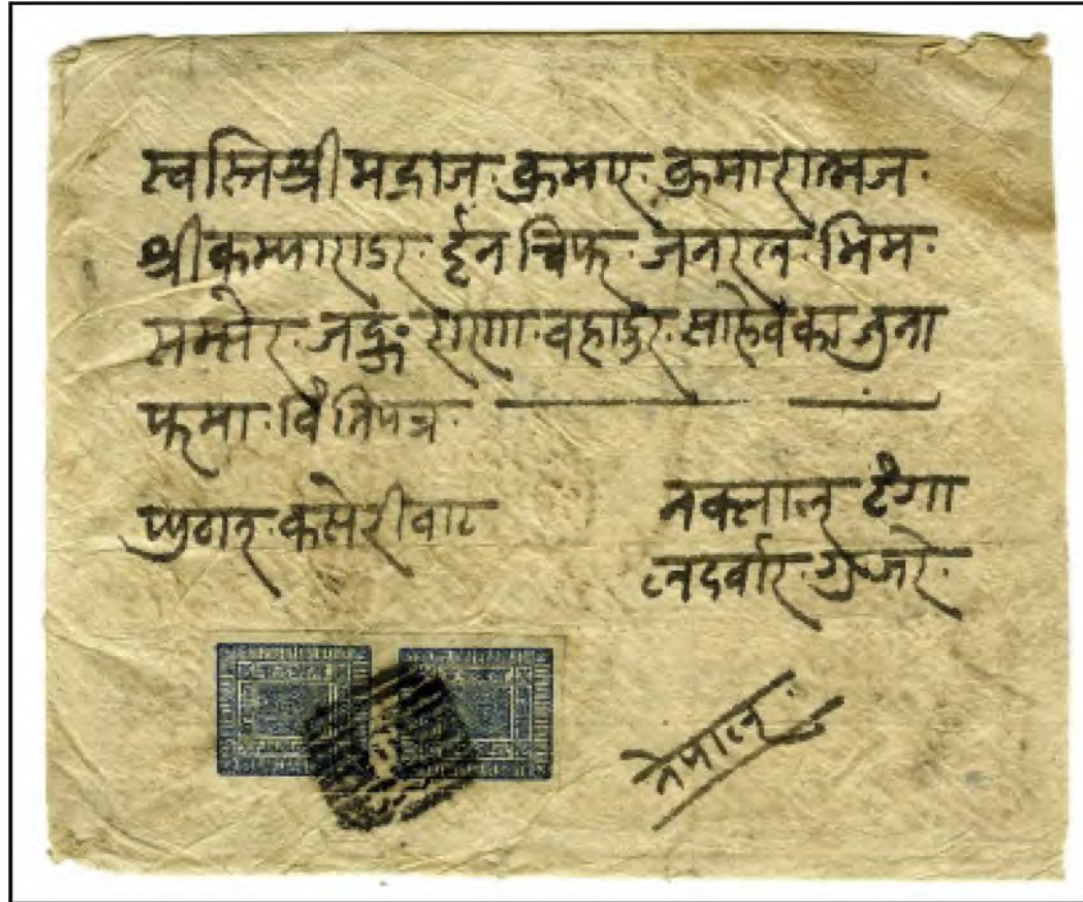 स्वस्तिश्री मद्राज कुमार कुमारात्मज
श्री कम्माराडर ईन चिफ जनरल भिम
सम्सेर जङ्ग राणा वहादुर साहेवका जुना
फमा विंतिपत्र
प्युठान कसेरीवाट
नक्साल टंगा
ल दर्वार गुजरे
नेपाल